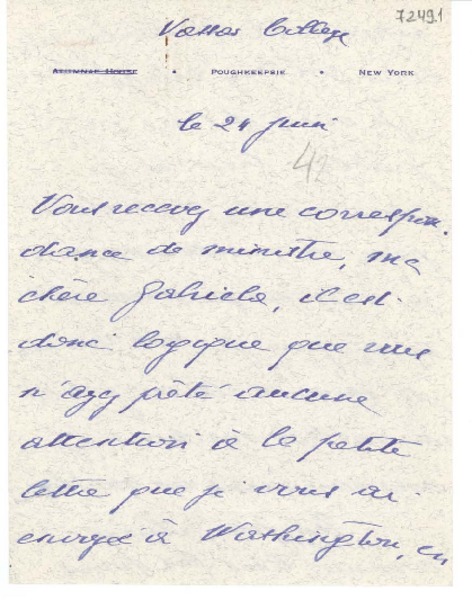 7249.1
Vassar College
ALUMNAE HOUSE • POUGHKEEPSIE • NEW YORK
le 24 juin
42
Vous recevez une correspon-
dance de ministre, ma
chère Gabriela, il est
donc logique que vous
n'ayez prêté aucune
attention à la petite
lettre que je vous ai
envoyée à Washington, en